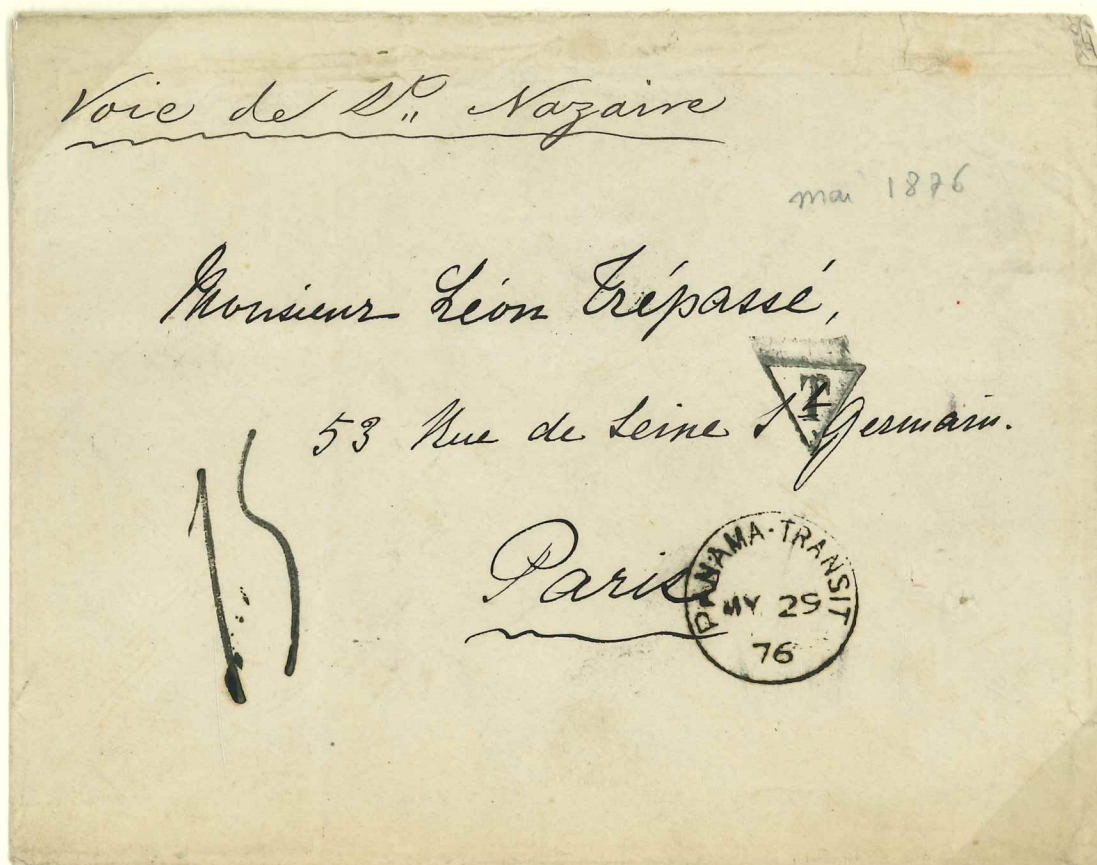 Voie de St. Nazaire
mai 1876
Monsieur Léon Trépassé,
T
53 Rue de Seine St Germain.
15
Paris
PANAMA-TRANSIT
MY 29
76